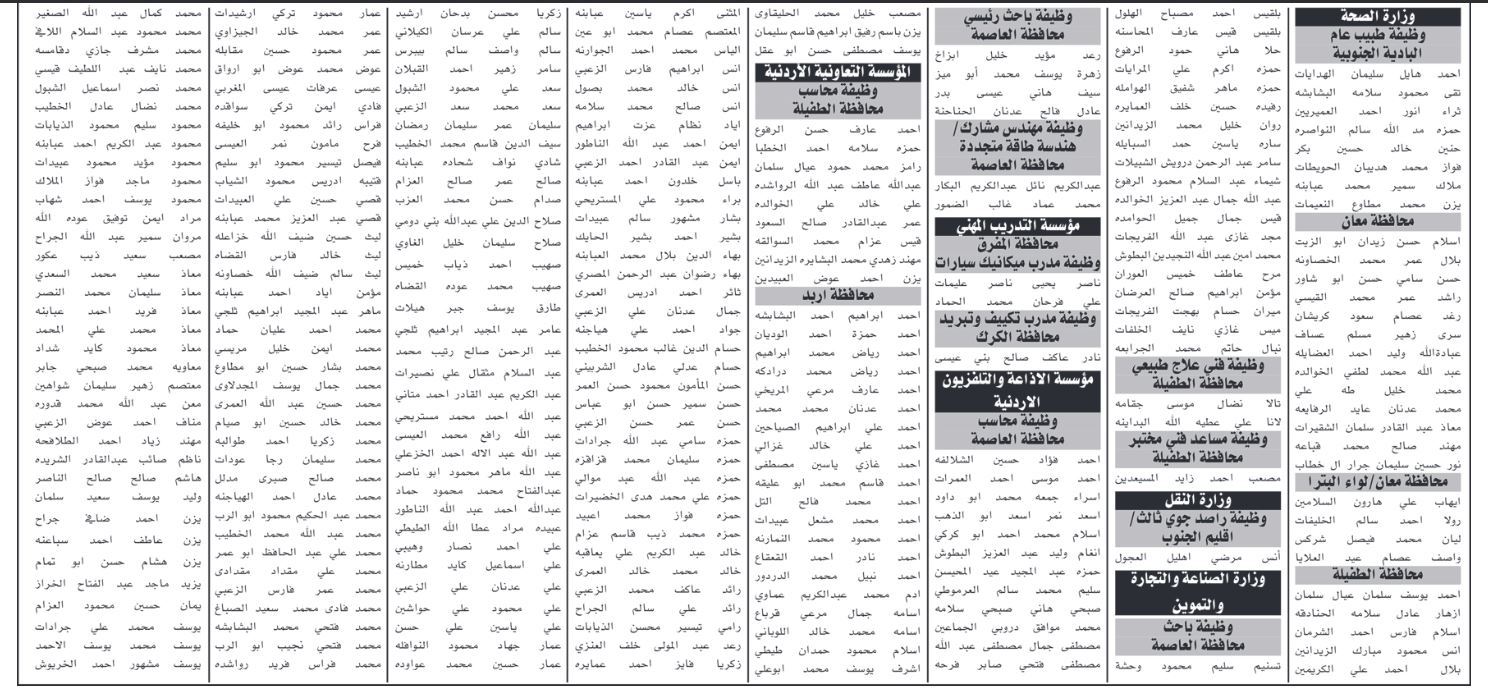 وزارة الصحة
وظيفة طبيب عام
البادية الجنوبية
احمد هايل سليمان الهدايات
تقى محمود سلامه البشابشه
ثراء انور احمد العميريين
حمزه مد الله سالم النواصره
حنين خالد حسين بكر
فواز محمد هديبان الحويطات
ملاك سمير محمد عبابنه
يزن محمد مطاوع النعيمات
محافظة معان
اسلام حسن زيدان ابو الزيت
بلال عمر محمد الخصاونه
حسن سامي حسن ابو شاور
راشد عمر محمد القيسي
رغد عصام سعود كريشان
سرى زهير مسلم عساف
عبادةالله وليد احمد العضايله
عبد الله محمد لطفي الخوالده
محمد خليل طه علي
محمد عدنان عايد الرفايعه
معاذ عبد القادر سلمان الشقيرات
مهند صالح محمد قباعه
نور حسين سليمان جرار ال خطاب
محافظة معان/لواء البترا
ايهاب علي هارون السلامين
رولا احمد سالم الخليفات
ليان محمد فيصل شركس
واصف عصام عيد العلايا
محافظة الطفيلة
احمد يوسف سلمان عيال سلمان
ازهار عادل سلامه الحنادقه
اسلام فارس احمد الشرمان
انس محمود مبارك الزيدانين
بلال احمد علي الكريمين
بلقيس احمد مصباح الهلول
بلقيس قيس عارف المحاسنه
حلا هاني حمود الرفوع
حمزه اكرم علي المرايات
حمزه ماهر شفيق الهوامله
رفيده حسين خلف العمايره
روان خليل محمد الزيدانين
ساره ياسين حمد السبايله
سامر عبد الرحمن درويش الشبيلات
شيماء عبد السلام محمود الرفوع
عبد الله جمال عبد العزيز الخوالده
قيس جمال جميل الحوامده
مجد غازي عبد الله الفريجات
محمد امين عبد الله النجيدين البطوش
مرح عاطف خميس العوران
مؤمن ابراهيم صالح العرضان
ميران حسام بهجت الفريجات
ميس غازي نايف الخلفات
نبال حاتم محمد الجرابعه
وظيفة فني علاج طبيعي
محافظة الطفيلة
تالا نضال موسى جقامه
لانا علي عطيه الله البداينه
وظيفة مساعد فني مختبر
محافظة الطفيلة
مصعب احمد زايد السبيعدين
وزارة النقل
وظيفة راصد جوي ثالث/
اقليم الجنوب
أنس مرضي اهليل العجول
وزارة الصناعة والتجارة
والتموين
وظيفة باحث
محافظة العاصمة
تسنيم سليم محمود وحشة
وظيفة باحث رئيسي
محافظة العاصمة
رعد مؤيد خليل ابزاخ
زهرة يوسف محمد أبو ميز
سيف هاني عيسى بدر
عادل فالح عدنان الحناحنة
وظيفة مهندس مشارك/
هندسة طاقة متجددة
محافظة العاصمة
عبدالكريم نائل عبدالكريم البكار
محمد عماد غالب الضمور
مؤسسة التدريب المهني
محافظة المفرق
وظيفة مدرب ميكانيك سيارات
ناصر يحيى ناصر عليمات
علي فرحان محمد الحماد
وظيفة مدرب تكييف وتبريد
محافظة الكرك
نادر عاكف صالح بني عيسى
مؤسسة الاذاعة والتلفزيون
الاردنية
وظيفة محاسب
محافظة العاصمة
احمد فؤاد حسين الشلالفه
احمد موسى احمد العمرات
اسراء جمعه محمد ابو داود
اسعد نمر اسعد ابو الذهب
اسلام محمد احمد ابو كركي
انغام وليد عبد العزيز البطوش
حمزه عبد المجيد عيد المحيسن
سليم محمد سالم العرموطي
صبحي هاني صبحي سلامه
محمد موافق دروبي الجماعين
مصطفى جمال مصطفى عبد الله
مصطفى فتحي صابر فرحه
مصعب خليل محمد الحليقاوى
يزن باسم رفيق ابراهيم قاسم سليمان
يوسف مصطفى حسن ابو عقل
المؤسسة التعاونية الأردنية
وظيفة محاسب
محافظة الطفيلة
احمد عارف حسن الرفوع
حمزه سلامه احمد الخطبا
رامز محمد حمود عيال سلمان
عبدالله عاطف عبد الله الرواشده
علي خالد علي الخوالده
عمر عبدالقادر صالح السعود
قيس عزام محمد السوالقه
مهند زهدي محمد البشايره الزيدانين
يزن احمد عوض العبيدين
محافظة اربد
احمد ابراهيم احمد البشابشه
احمد حمزة احمد الوديان
احمد رياض محمد ابراهيم
احمد رياض محمد درادكه
احمد عارف مرعي المريخي
احمد عدنان محمد محمد
احمد علي ابراهيم الصياحين
احمد علي خالد غزالي
احمد غازي ياسين مصطفى
احمد قاسم محمد ابو عليقه
احمد محمد فالح التل
احمد محمد مشعل عبيدات
احمد محمود محمد النمارنه
احمد نادر احمد القعقاع
احمد نبيل محمد الدردور
ادم محمد عبدالكريم عماوي
اسامه جمال مرعي قرباع
اسامه محمد خالد اللوباني
اسلام محمود حمدان طيطي
اشرف يوسف محمد ابوعلي
المثنى اكرم ياسين عبابنه
المعتصم عصام محمد ابو عين
الياس محمد احمد الجوارنه
انس ابراهيم فارس الزعبي
انس خالد محمد بصول
انس صالح محمد سلامه
اياد نظام عزت ابراهيم
ايمن احمد عبد الله الناطور
ايمن عبد القادر احمد الزعبي
باسل خلدون احمد عبابنه
براء محمود علي المستريحي
بشار مشهور سالم عبيدات
بشير احمد بشير الحايك
بهاء الدين بلال محمد العبابنه
بهاء رضوان عبد الرحمن المصري
ثائر احمد ادريس العمرى
جمال عدنان علي الزعبي
جواد احمد علي هياجنه
حسام الدين غالب محمود الخطيب
حسام عدلي عادل الشربيني
حسن المأمون محمود حسن العمر
حسن سمير حسن ابو عباس
حسن عمر حسن الزعبي
حمزه سامي عبد الله جرادات
حمزه سليمان محمد قزاقزه
حمزه عبد الله عبد موالي
حمزه علي محمد هدى الخضيرات
حمزه فواز محمد اعبيد
حمزه محمد ذيب قاسم عزام
خالد عبد الكريم علي يعاقبه
خالد محمد خالد العمرى
رائد عاكف محمد الزعبي
رائد علي سالم الجراح
رامي تيسير محسن الذيابات
رعد عبد المولى خلف العنزي
زكريا فايز احمد عمايره
زكريا محسن بدحان ارشيد
سالم علي عرسان الكيلاني
سالم واصف سالم بيبرس
سامر زهير احمد القبلان
سعد علي محمود الشبول
سعد محمد سعد الزعبي
سليمان عمر سليمان رمضان
سيف الدين قاسم محمد الخطيب
شادي نواف شحاده عبابنه
صالح عمر صالح العزام
صدام حسن محمد العزب
صلاح الدين علي عبدالله بني دومي
صلاح سليمان خليل الغاوي
صهيب احمد ذياب خميس
صهيب محمد عوده القضاه
طارق يوسف جبر هيلات
عامر عبد المجيد ابراهيم ثلجي
عبد الرحمن صالح رتيب محمد
عبد السلام مثقال علي نصيرات
عبد الكريم عبد القادر احمد متاني
عبد الله احمد محمد مستريحي
عبد الله رافع محمد العيسى
عبد الله عبد الاله احمد الخزعلي
عبد الله ماهر محمود ابو ناصر
عبدالفتاح محمد محمود حماد
عبدالله احمد عبد الله الناطور
عبيده مراد عطا الله الطيطي
علي احمد نصار وهيبي
علي اسماعيل كايد مطارنه
علي عدنان علي الزعبي
علي محمود علي حواشين
علي ياسين علي حسن
عمار جهاد محمود النوافله
عمار حسين محمد عواوده
عمار محمود تركي ارشيدات
عمر محمد خالد الجيزاوي
عمر محمود حسين مقابله
عوض محمد عوض ابو ارواق
عيسى عرفات عيسى المغربي
فادي ايمن تركي سواقده
فراس رائد محمود ابو خليفه
فرح مامون نمر العيسى
فيصل تيسير محمود ابو سليم
قتيبه ادريس محمود الشياب
قصي حسين علي العبيدات
قصي عبد العزيز محمد عبابنه
ليث حسين ضيف الله خزاعله
ليث خالد فارس القضاه
ليث سالم ضيف الله خصاونه
مؤمن اياد احمد عبابنه
ماهر عبد المجيد ابراهيم ثلجي
محمد احمد عليان حماد
محمد ايمن خليل مريسي
محمد بشار حسين ابو مطاوع
محمد جمال يوسف المجدلاوى
محمد حسين عبد الله العمرى
محمد خالد حسين ابو صيام
محمد زكريا احمد طوالبه
محمد سليمان رجا عودات
محمد صالح صبرى مدلل
محمد عادل احمد الهياجنه
محمد عبد الحكيم محمود ابو الرب
محمد عبد الله محمد الخطيب
محمد علي عبد الحافظ ابو عمر
محمد علي مقداد مقدادى
محمد عمر فارس الزعبي
محمد فادى محمد سعيد الصباغ
محمد فتحي محمد البشابشه
محمد فتحي نجيب ابو الرب
محمد فراس فريد رواشده
محمد كمال عبد الله الصغير
محمد محمود عبد السلام اللافي
محمد مشرف جازي دقامسه
محمد نايف عبد اللطيف قيسي
محمد نصر اسماعيل الشبول
محمد نضال عادل الخطيب
محمود سليم محمود الذيابات
محمود عبد الكريم احمد عبابنه
محمود مؤيد محمود عبيدات
محمود ماجد فواز الملاك
محمود يوسف احمد شهاب
مراد ايمن توفيق عوده الله
مروان سمير عبد الله الجراح
مصعب سعيد ذيب عكور
معاذ سعيد محمد السعدي
معاذ سليمان محمد النصر
معاذ فريد احمد عبابنه
معاذ محمد علي المحمد
معاذ محمود كايد شداد
معاويه محمد صبحي جابر
معتصم زهير سليمان شواهين
معن عبد الله محمد قدوره
مناف احمد عوض الزعبي
مهند زياد احمد الطلافحه
ناظم صائب عبدالقادر الشريده
هاشم صالح صالح الناصر
وليد يوسف سعيد سلمان
يزن احمد ضافي جراح
يزن عاطف احمد سباعنه
يزن هشام حسن ابو تمام
يزيد ماجد عبد الفتاح الخراز
يمان حسين محمود العزام
يوسف محمد علي جرادات
يوسف محمد يوسف الاحمد
يوسف مشهور احمد الخريوش